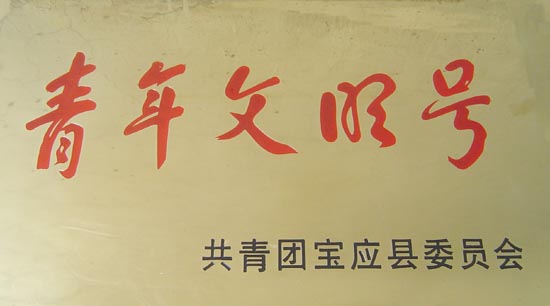 青年文明号
共青团宝应县委员会